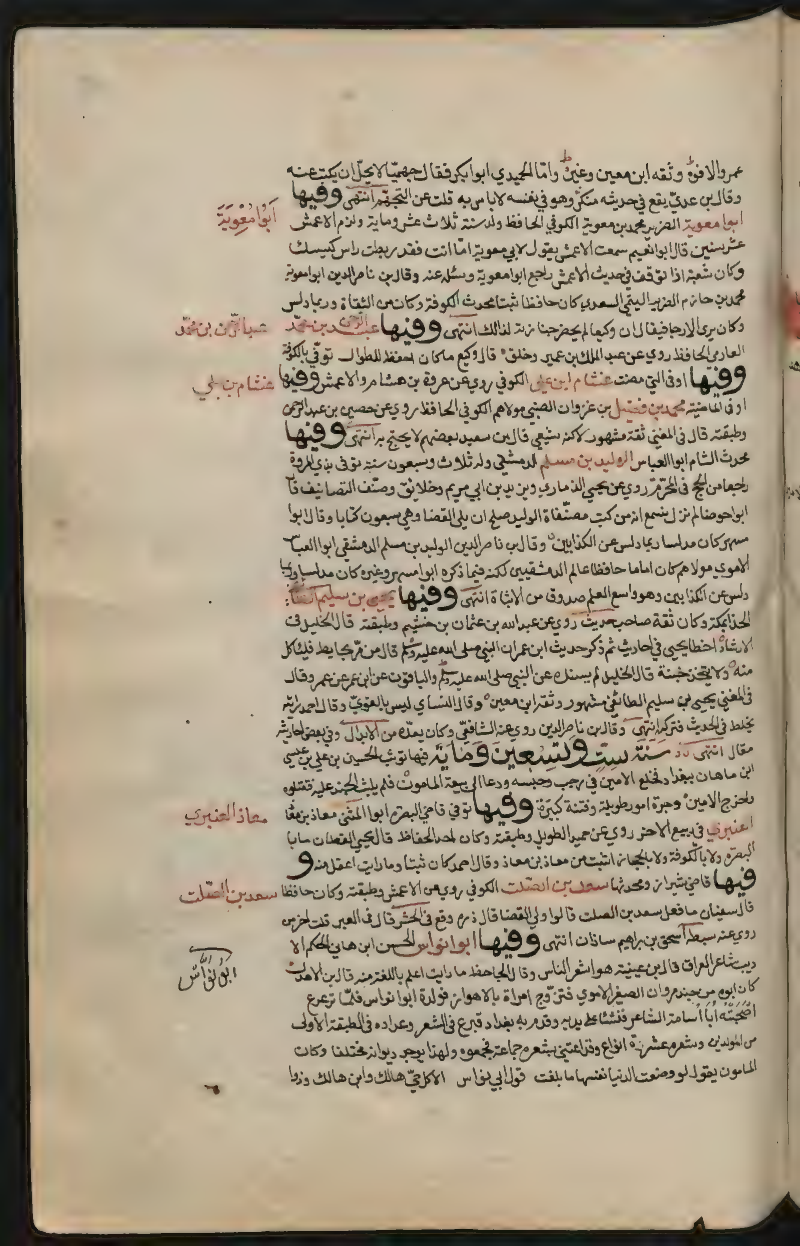 عمر والافوه وثقه ابن معين وغيره واما الحميدي ابوا بكر فقال جهميا لا يحل ان يكتب عنه
وقال بن عدي يقع في حديثه منكر وهو في نفسه لا باس به قلت عن التجهم انتهى وفيها
ابوا معوية الضرير محمد بن معوية الكوفي الحافظ ولد سنة ثلاث عشر وماية ولزم الاعمش
ابوا معوية
عشر سنين قال ابوا نعيم سمعت الاعمش يقول لابي معوية اما انت فقد ربطت راس كيسك
وكان شعبة اذا توقف في حديث الاعمش راجع ابوا معوية وسئله عنه وقال بن ناصر الدين ابوا معوية
محمد بن حازم الضرير التيمي السعدي كان حافظا ثبتا محدث الكوفة وكان من الثقاة وربما دلس
وكان يرى الارجا فيقال ان وكيعا لم يحضر جنازته لذالك انتهى وفيها عبد الرحمن بن محمد
عبد الرحمن بن محمد
المحاربي الحافظ روي عن عبد الملك بن عمير وخلق قال وكيع ما كان احفظه للطوال توفي بالكوفة
وفيها او في التي مضت عشام ابن علي الكوفي روي عن عروة بن هشام والاعمش وفيها
عشام بن علي
او في الماضية محمد بن فضيل بن غزوان الضبي مولاهم الكوفي الحافظ روي عن حصين بن عبد الرحمن
وطبقته قال في المغني ثقة مشهور لاكنه شيعي قال بن سعيد بعضهم لا يحتج به انتهى وفيها
محدث الشام ابوا العباس الوليد بن مسلم الدمشقي وله ثلاث وسبعون سنة توفي بذي المروة
راجعا من الحج في المحرم روي عن يحيى الذماري ويزيد بن ابي مريم وخلائق وصنف التصانيف قال
ابوا حوضا لم نزل نسمع انه من كتب مصنفاة الوليد صلح ان يلي القضا وهي سبعون كتابا وقال ابوا
مسهر كان مدلسا ربما دلس عن الكذابين وقال بن ناصر الدين الوليد بن مسلم الدمشقي ابوا العباس
الاموي مولاهم كان اماما حافظا عالم الدمشقيين لكنه فيما ذكره ابوا مسهر وغيره كان مدلسا وربما
دلس عن الكذابين وهو واسع العلم صدوق من الاثباة انتهى وفيها يحيى بن سليم الطائفي
الحذا بمكة وكان ثقة صاحب حديث روي عن عبد الله بن عثمان بن خثيم وطبقته قال الخليل في
الارشاد اخطا يحيى في احاديث ثم ذكر حديث ابن عمر ان النبي صلى الله عليه وسلم قال من مر بحايط فلياكل
منه ولا يتخذ خبنة قال الخليل لم يسنده عن النبي صلى الله عليه وسلم والباقون عن ابن عمر عن عمر وقال
في المغني يحيى بن سليم الطائفي مشهور وثقه ابن معين وقال النساي ليس بالقوي وقال احمد رايته
يخلط في الحديث فتركه انتهى وقال بن ناصر الدين روي عنه الشافعي وكان يعده من الابدال وفي بعض احاديثه
مقال انتهى سنة ست وتسعين وماية فيها توثب الحسين بن علي بن عيسى
ابن ماهان ببغداد فخلع الامين في رجب وحبسه ودعا الى بيعة المامون فلم يلبث الجند عليه فقتلوه
واخرج الامين وجرة امور طويلة وفتنة كبيرة وفيها توفي قاضي البصره ابوا المثنى معاذ بن معاذ
معاذ العنبري
العنبري في ربيع الاخر روي عن حميد الطويل وطبقته وكان احد الحفاظ قال يحيى القطان ما با
البصره ولا بالكوفة ولا بالحجاز اثبت من معاذ بن معاذ وقال احمد كان ثبتا وما رايت اعقل منه و
فيها قاضي شيراز ومحدثها سعد بن الصلت الكوفي روي عن الاعمش وطبقته وكان حافظا
سعد بن الصلت
قال سفيان ما فعل سعد بن الصلت قالوا ولي القضا قال ذره وقع في الحش قال في العبر قلت اخر من
روي عنه سبطه اسحق بن براهيم ساذان انتهى وفيها ابوا نواس الحسن ابن هاني الحكم الا
ابوا نواس
ديب شاعر العراق قال بن عيينة هو اشعر الناس وقال الجاحظ ما رايت اعلم باللغة منه قال بن الاهدل
كان ابوه من جند مروان الصغير الاموي فتزوج امراة بالاهواز فولدة ابوا نواس فلما ترعرع
اصحبته ابا اسامة الشاعر فنشا على يديه وقدم به بغداد فبرع في الشعر وعداده في الطبقة الاولى
من المولدين وشعره عشرة انواع وقد اعتنى بشعره جماعة فجمعوه ولهذا يوجد ديوانه مختلفا وكان
المامون يقول لو وصفت الدنيا نفسها ما بلغت قول ابي نواس الا كل حي هالك وابن هالك وذوا